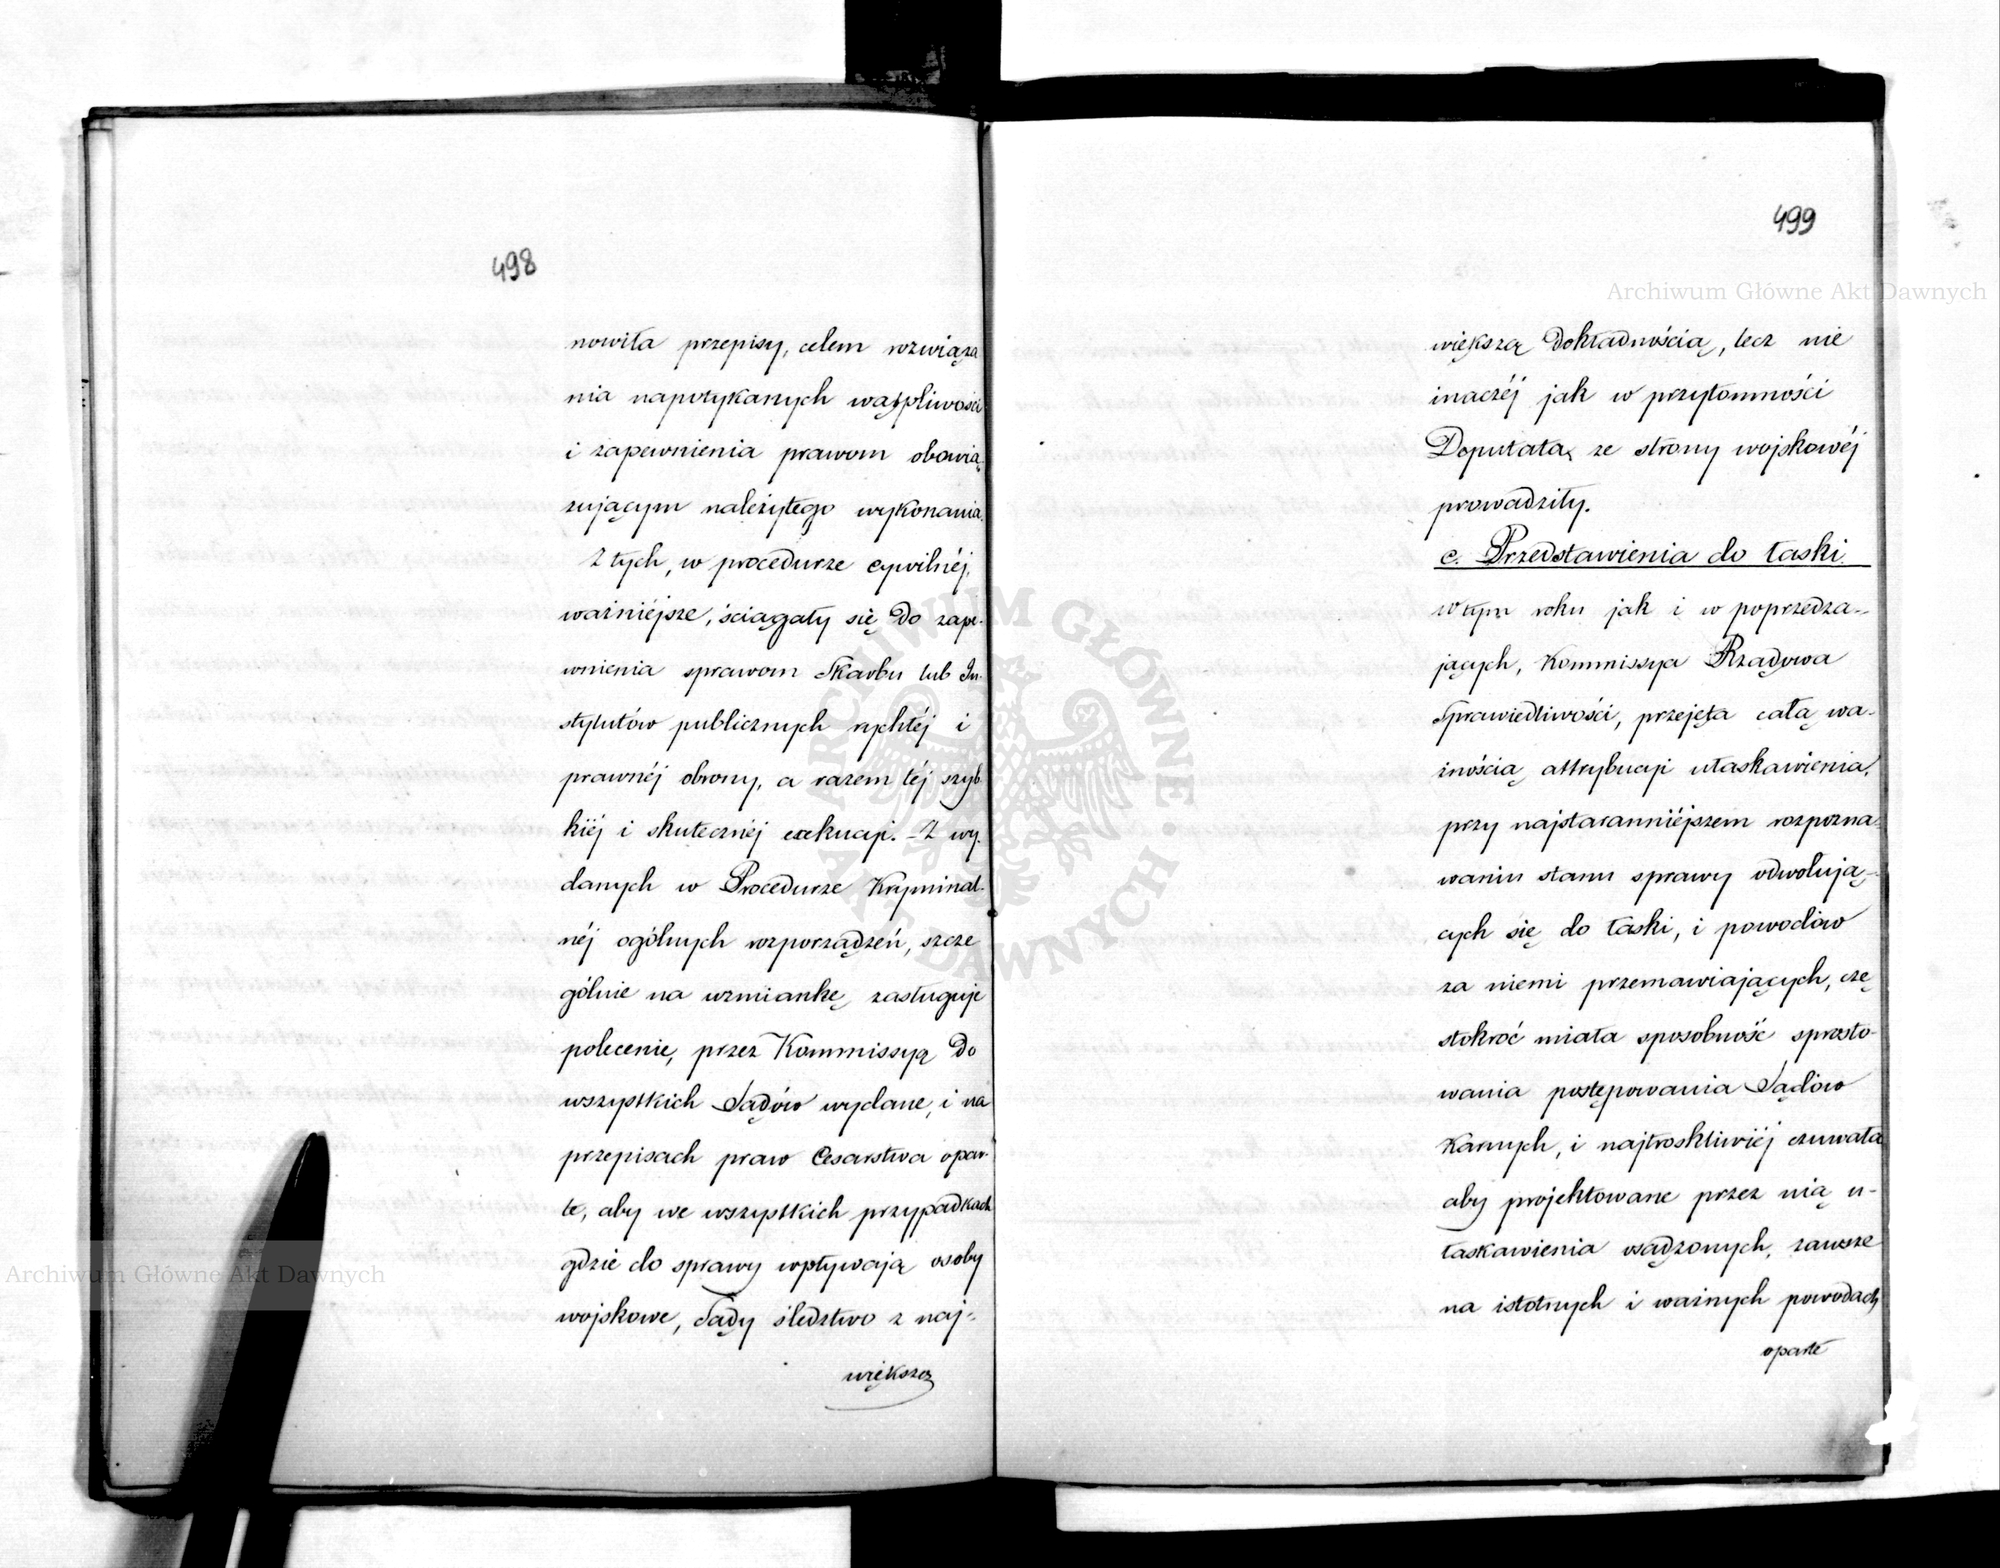 498
nowiła przepisy, celem rozwiąza
nia napotykanych wątpliwości
i zapewnienia prawom obowią-
zującym należytego wykonania.
Z tych, w procedurze cywilnéj,
ważniéjsze, ściągały się do zape-
wnienia sprawom Skarbu lub In-
stytutów publicznych rychłéj i
prawnéj obrony, a razem téj szyb
kiéj i skutecznéj exekucyi. – Z wy-
danych w Procedurze Kryminal-
néj ogólnych rozporządzeń, szcze
gólnie na wzmiankę zasługuje
polecenie, przez Kommissyą do
wszystkich Sądów wydane, i na
przepisach praw Cesarstwa opar-
te, aby we wszystkich przypadkach
gdzie do sprawy wpływają osoby
wojskowe, Sądy śledztwo z naj-
większą
499
większą dokładnością, lecz nie
inaczéj jak w przytomności
Deputata ze strony wojskowéj
prowadziły.
c. Przedstawienia do łaski.
W tym roku jak i w poprzedza-
jących, Kommissya Rządowa
Sprawiedliwości, przejęta całą wa-
żnością attrybucyi ułaskawienia,
przy najstaranniéjszem rozpozna-
waniu stanu sprawy odwołują-
cych się do łaski, i powodów
za niemi przemawiających, czę
stokroć miała sposobność sprosto-
wania postępowania Sądów
Karnych, i najtroskliwiéj czuwała
aby projektowane przez nią u-
łaskawienia osądzonych, zawsze
na istotnych i ważnych powodach
oparte
Archiwum Główne Akt Dawnych
Archiwum Główne Akt Dawnych
ARCHIWUM GŁÓWNE • AKT DAWNYCH •